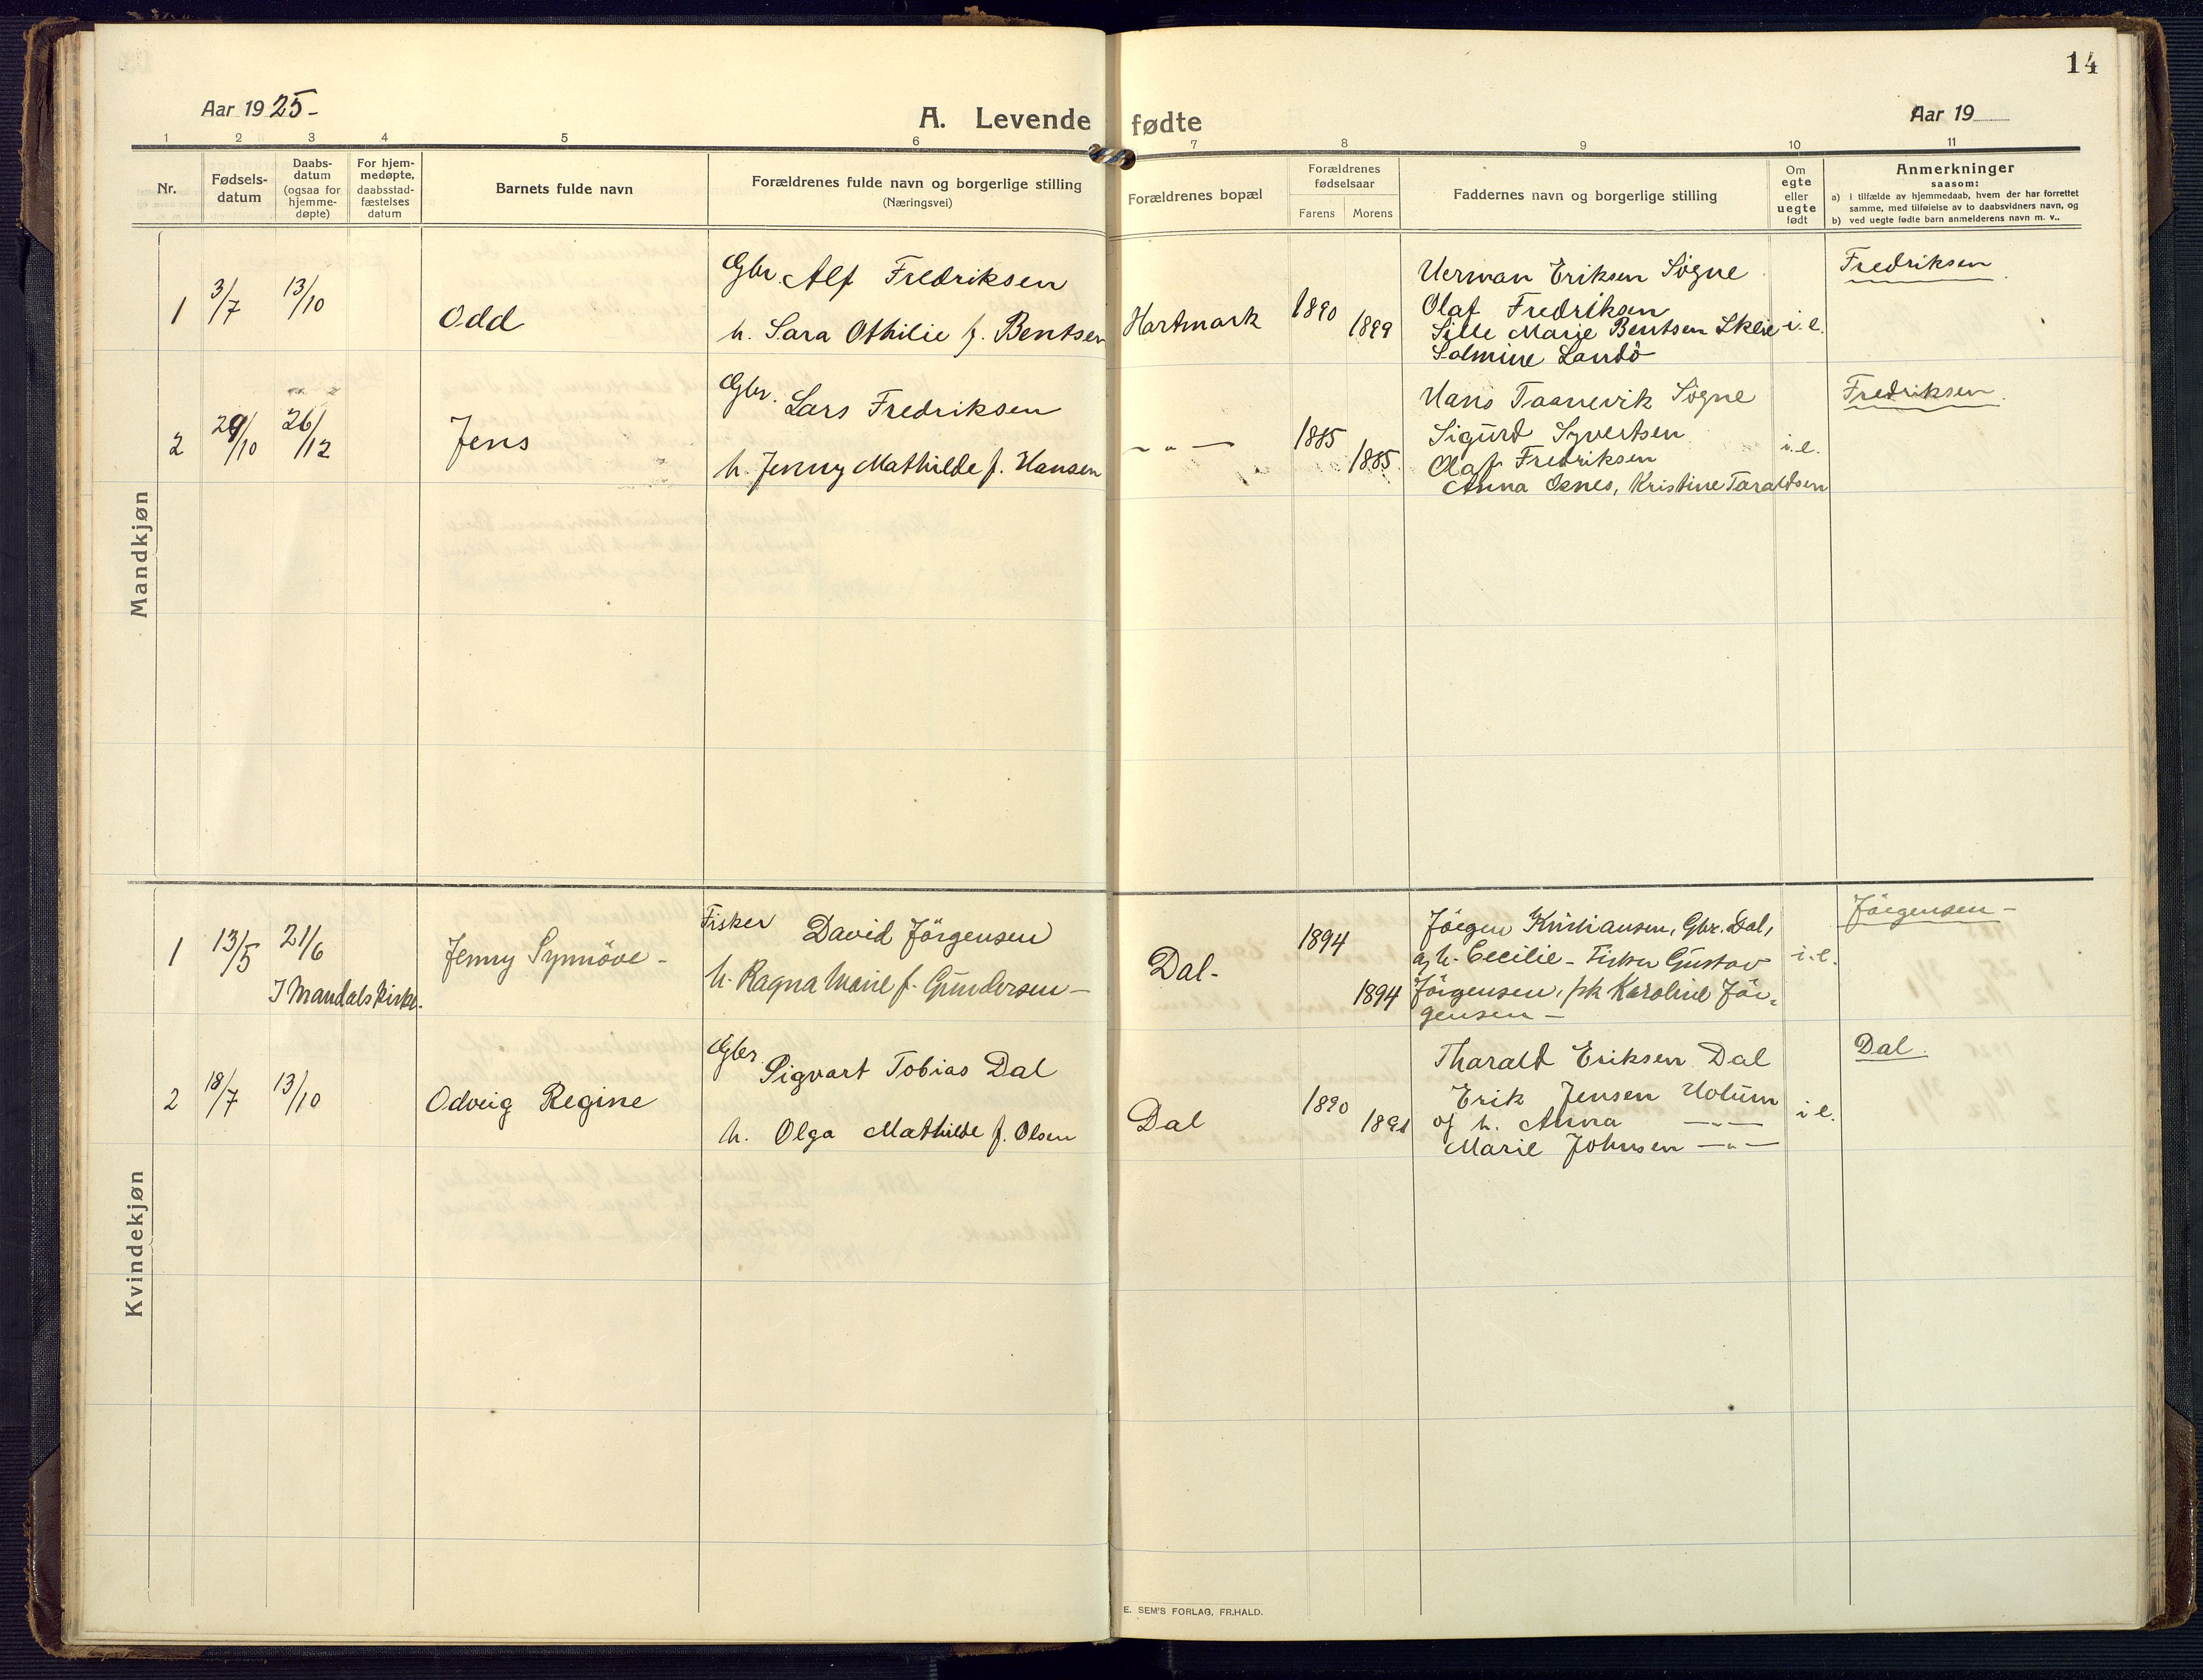 14
Aar 1925-
A. Levende fødte
Aar 19
1 2 3 4 5 6 7 8 9 10 11
Nr.
Fødsels-
datum
Daabs-
datum
(ogsaa for
hjemme-
døpte)
For hjem-
medøpte,
daabsstad-
fæstelses
datum
Barnets fulde navn
Forældrenes fulde navn og borgerlige stilling
(Næringsvei)
Forældrenes bopæl
Forældrenes
fødselsaar
Farens Morens
Faddernes navn og borgerlige stilling
Om
egte
eller
uegte
født
Anmerkninger
saasom:
a) i tilfælde av hjemmedaab, hvem der har forrettet
samme, med tilføielse av to daabsvidners navn, og
b) ved uegte fødte barn anmelderens navn m. v..
Mandkjøn
1 3/7 13/10
Odd
Gbr. Alf Fredriksen
h. Sara Othilie f. Bentsen
Hartmark
1890
1899
Herman Eriksen Søgne
Olaf Fredriksen
Sille Marie Bentsen Skeie
Salmine Landö
i. e.
Fredriksen
2 29/10 26/12
Jens
Gbr. Lars Fredriksen
h. Jenny Mathilde f. Hansen
- " -
1885
1885
Hans Taanevik Søgne
Sigurd Syvertsen
Olaf Fredriksen
Anna Osnes, Kristine Taraldsen
i. e.
Fredriksen.
Kvindekjøn
1 13/5 21/6
I Mandals Kirke.
Jenny Synnöve -
Fisker David Jörgensen
h. Ragna Marie f. Gundersen -
Dal-
1894
1894
Jörgen Kristiansen, Gbr. Dal,
og h. Cecilie - Fisker Gustav
Jörgensen, pk Karoline Jör-
gensen -
i. e.
Jörgensen -
2 18/7 13/10
Odveig Regine
Gbr Sigvart Tobias Dal
h. Olga Mathilde f. Olsen
Dal
1890
1891
Tharald Eriksen Dal
Erik Jensen Holum
og h. Anna - " -
Marie Johnsen - " -
i e.
Dal.
E. SEM'S FORLAG, FR.HALD.